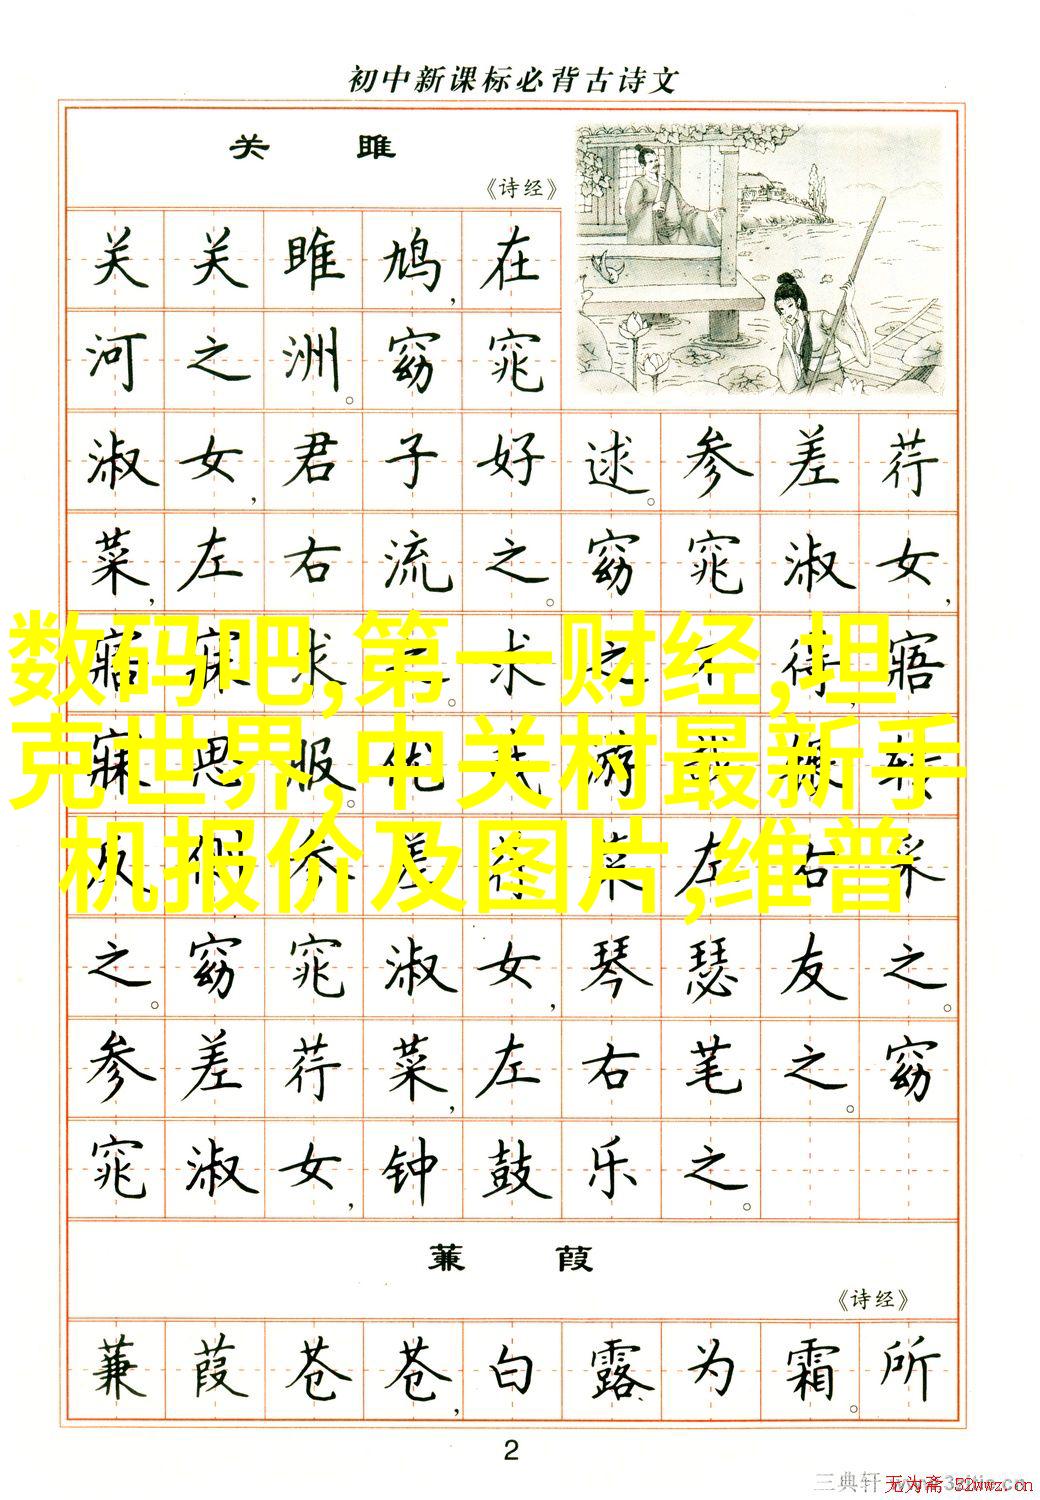 初中新课标必背古诗文
关 雎
《诗经》
关关雎鸠,在
河之洲。窈窕
淑女,君子好逑。参差荇
菜,左右流之。窈窕淑女,
寤寐求之。求之不得,寤
寐思服。优哉游哉辗转
反侧参差荇菜左右采
之。窈窕淑女,琴瑟友之。
参差荇菜,左右芼之。窈
窕淑女,钟鼓乐之。
数码吧,第一财经,坦
克世界,中关村最新手
机报价及图片,维普
蒹 葭
《诗经》
蒹葭苍苍,白露为霜。所
2
三典轩
无为斋 52wwz.cn